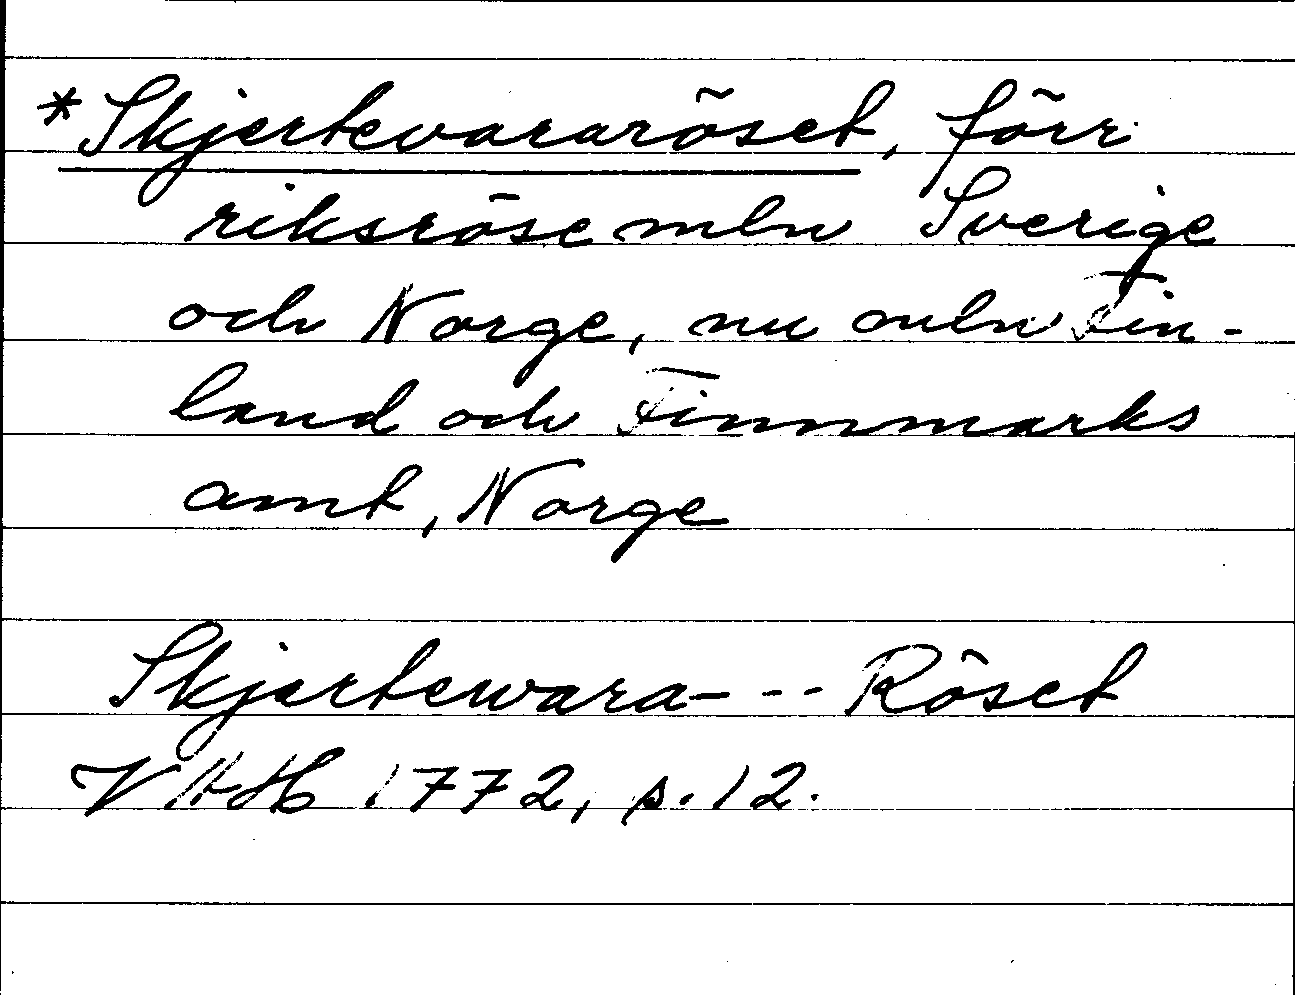 *Skjertevararöset, förr
riksröse mln Sverige
och Norge, nu mln Fin-
land och Finnmarks
amt, Norge
Skjertewara- -- Röset
VAH 1772, p. 12.